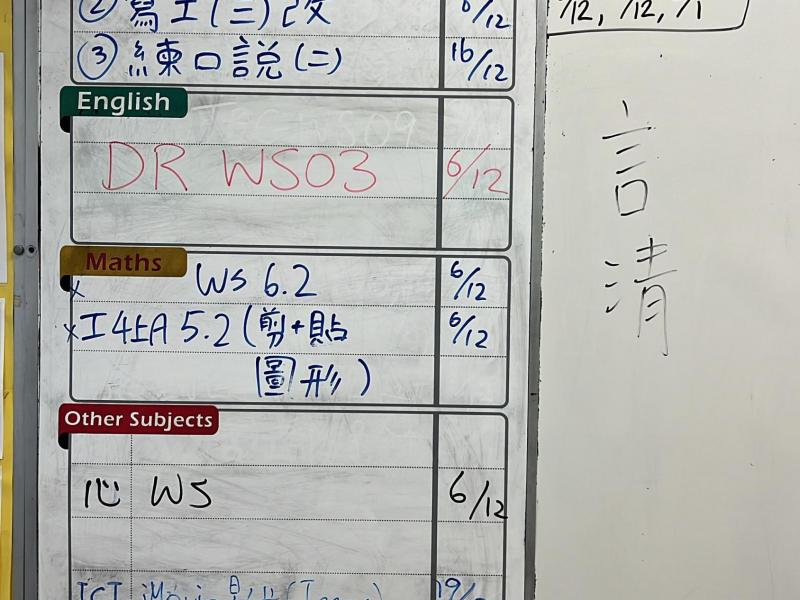 ② 寫工(二)改 6/12
/12, /12, /1
③ 練口說(二) 16/12
English
DR WS03 6/12
Maths
x WS 6.2 6/12
x工4上A 5.2(剪+貼 6/12
圖形)
Other Subjects
心 WS 6/12
ICT iMovie 19/
言
清